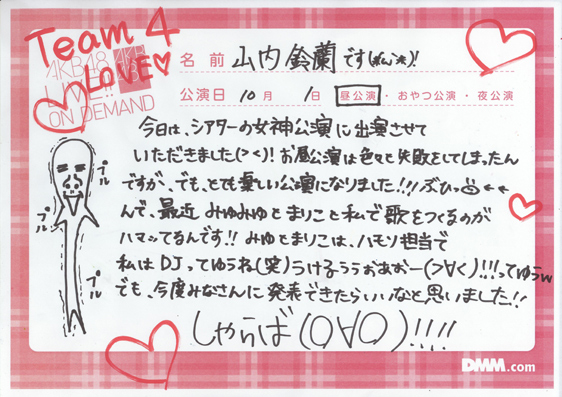 Team 4
LOVE♡
AKB48
LIVE!!
ON DEMAND
名前 山内 鈴蘭です(*ん*)!
公演日 10月 1日 昼公演・おやつ公演・夜公演
今日は、シアターの女神公演に出演させて
いただきました(><)! お昼公演は色々と失敗をしてしまったん
ですが、でも、とても楽しい公演になりました!!!ズひっ
んで、最近 みゆみゆとまりこと私で歌をつくるのが
ハマってるんです!! みゆとまりこは、ハモリ担当で
私は DJ ってゆうね(笑)うけるぅぅおあおー(>∀<)!!!ってゆうw
でも、今度みなさんに発表できたらいいなと思いました!!
しゃらば(O∀O)!!!!
プル
プル
プル
DMM.com